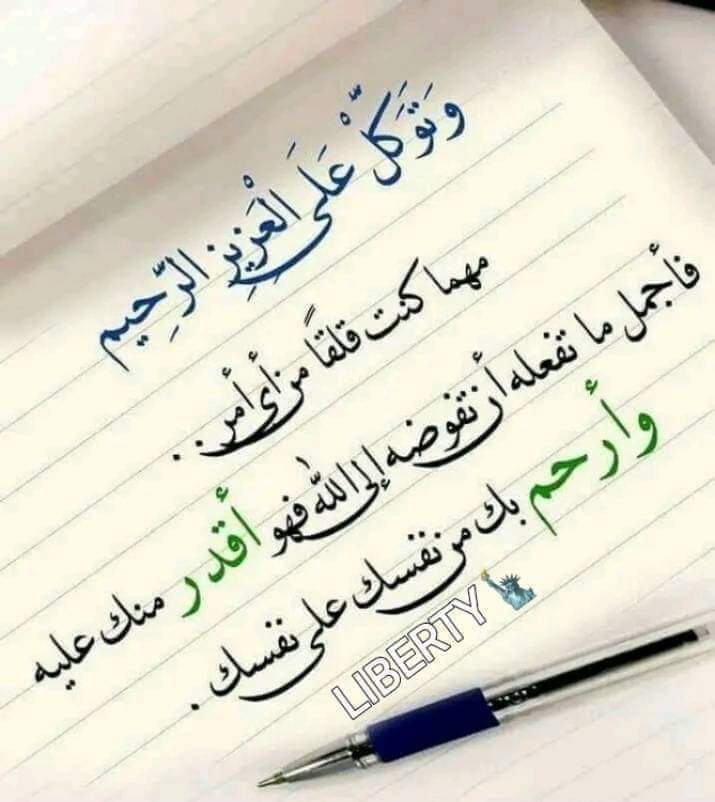 وَتَوَكَّلْ عَلَى الْعَزِيزِ الرَّحِيمِ
مهما كنت قلقًا من أي أمر..
فأجمل ما تفعله أن تفوضه إلى الله فهو أقدر منك عليه
وأرحم بك من نفسك على نفسك.
LIBERTY